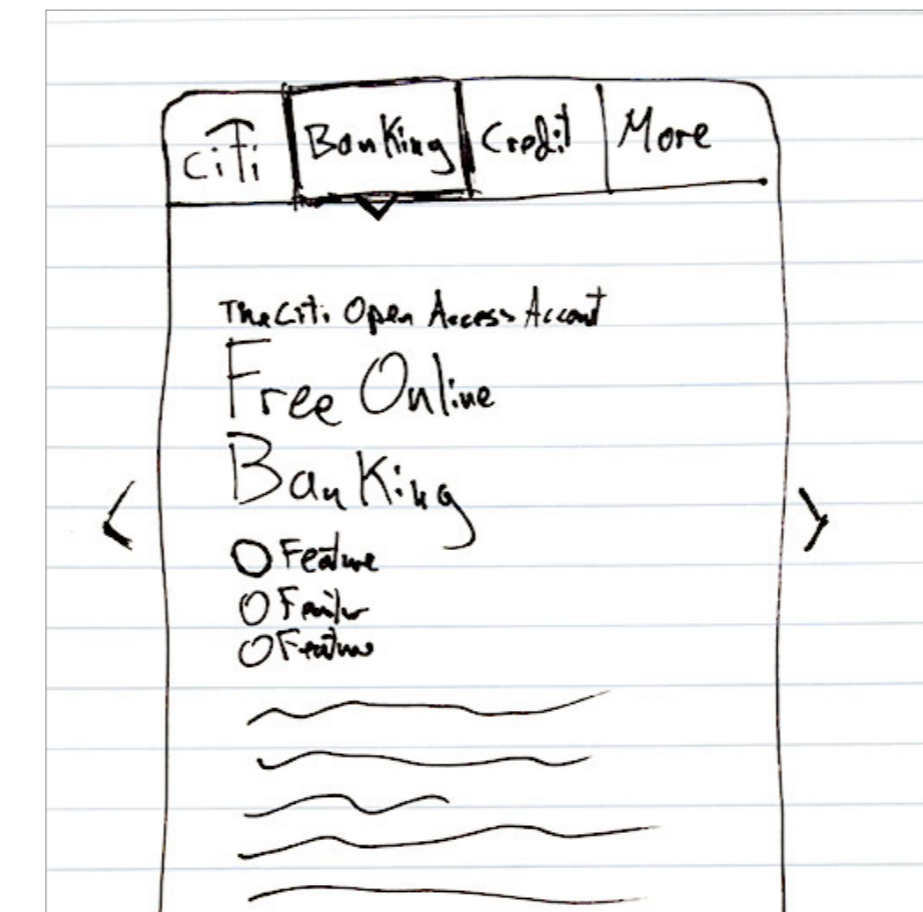 citi Banking Credit More
The Citi Open Access Account
Free Online
Banking
Feature
Feature